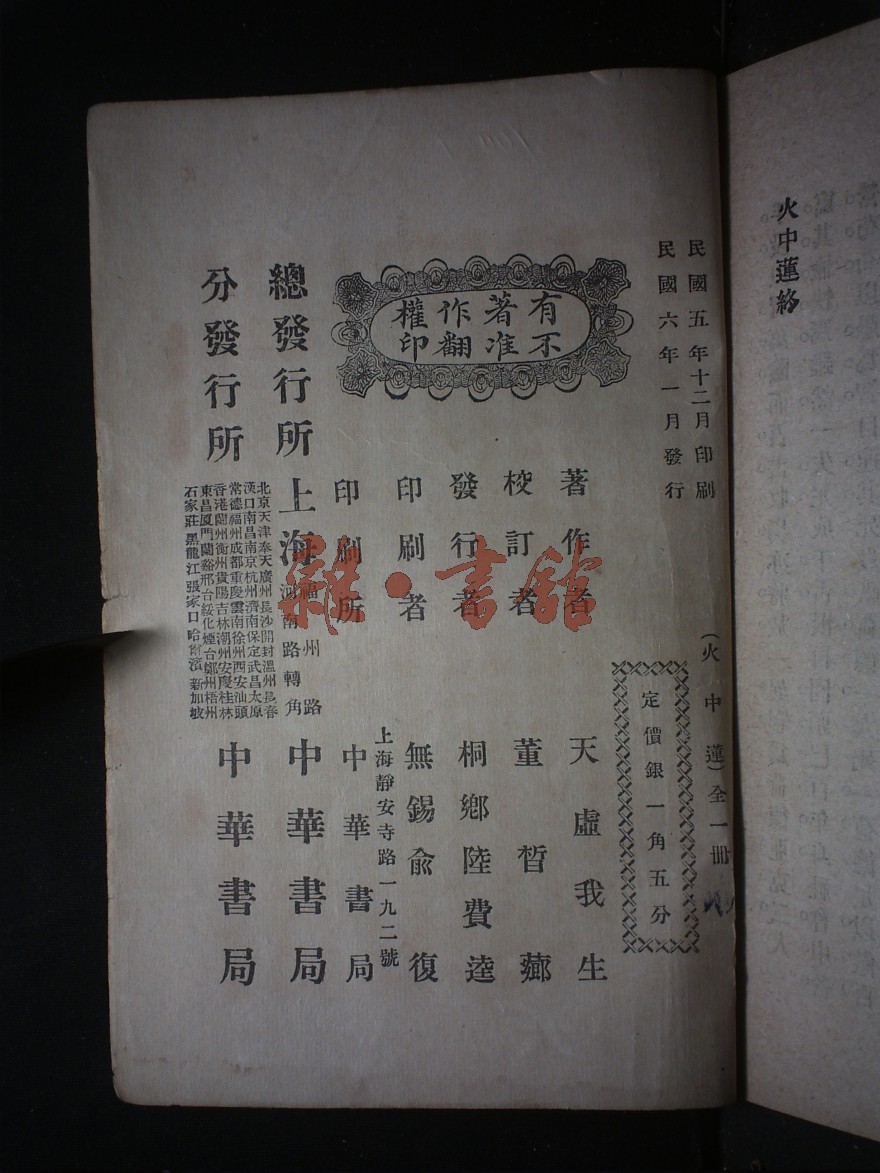 火中蓮終
民國五年十二月印刷
民國六年一月發行
(火中蓮)全一冊
定價銀一角五分
有著作權
不准翻印
著作者 天虛我生
校訂者 董晳薌
發行者 桐鄉陸費逵
印刷者 無錫俞復
上海靜安寺路一九二號
印刷所 中華書局
總發行所 上海 福州路 河南路轉角 中華書局
分發行所 中華書局
北京天津奉天廣州長沙開封溫州長春
漢口南昌南京杭州濟南保定武昌太原
常德福州成都重慶雲南徐州西安汕頭
香港蘭州衡州貴陽吉林潮州安慶桂林
東昌厦門蘭谿邢台綏化煙台鄭州梧州
石家莊黑龍江張家口哈爾濱新加坡
雜·書館